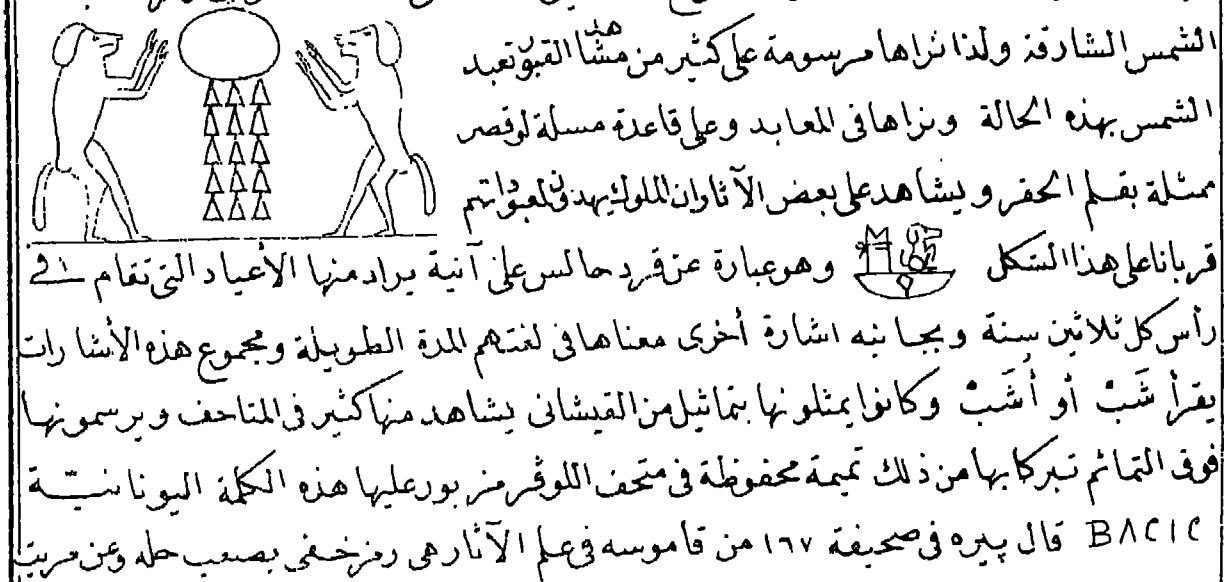 الشمس الشارقة ولذا نراها مرسومة على كثير من مشاهد القبور تعبد
الشمس بهذه الحالة ونراها فى المعابد وعلى قاعدة مسلة لوقصر
ممثلة بقلم الحفر ويشاهد على بعض الآثار ان الملوك يهدون لمعبوداتهم
قربانا على هذا الشكل وهو عبارة عن قرد جالس على آنية يراد منها الأعياد التى تقام فى
رأس كل ثلاثين سنة وبجانبه اشارة أخرى معناها فى لغتهم المدة الطويلة ومجموع هذه الأشارات
يقرأ شَبْ أو أُشَبْ وكانوا يمثلونها بتماثيل من القيشانى يشاهد منها كثير فى المتاحف ويرسمونها
فوق التمائم تبركا بها من ذلك تميمة محفوظة فى متحف اللوڤر مزبور عليها هذه الكلمة اليونانيـــة
BACIC قال پيره فى صحيفة ١٦٧ من قاموسه فى علم الآثار هى رمز خفى يصعب حله وعن مريت